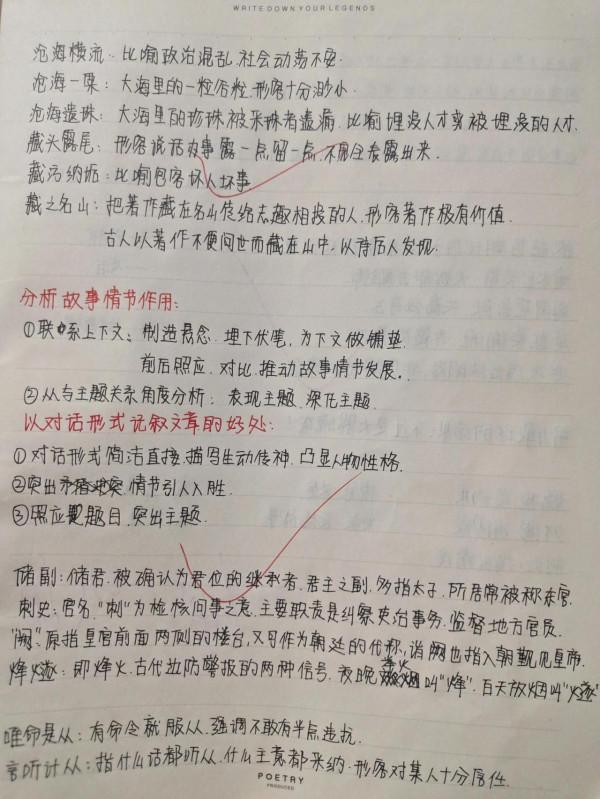 WRITE DOWN YOUR LEGENDS
沧海横流：比喻政治混乱，社会动荡不安.
沧海一粟：大海里的一粒谷粒，形容十分渺小.
沧海遗珠：大海里的珍珠被采珠者遗漏，比喻埋没人才或被埋没的人才.
藏头露尾：形容说话办事露一点留一点，不完全表露出来.
藏污纳垢：比喻包容坏人坏事
藏之名山：把著作藏在名山传给志趣相投的人，形容著作极有价值.
古人以著作不便问世而藏在山中，以待后人发现.
分析故事情节作用：
①联系上下文：制造悬念，埋下伏笔，为下文做铺垫
前后照应，对比，推动故事情节发展.
②从与主题关系角度分析：表现主题，深化主题.
以对话形式记叙文章的好处：
①对话形式简洁直接，描写生动传神，凸显人物性格.
②突出矛盾冲突，情节引人入胜.
③照应题目，突出主题.
储副：储君，被确认为君位的继承者，君主之副，多指太子，所居常被称东宫.
刺史：官名，"刺"为检核问事之意，主要职责是纠察吏治事务，监督地方官员.
"阙"，原指皇宫前面两侧的楼台，又可作为朝廷的代称，诣阙也指入朝觐见皇帝.
烽燧：即烽火，古代边防警报的两种信号，夜晚举火叫"烽"，白天放烟叫"燧"
唯命是从：有命令就服从，强调不敢有半点违抗.
言听计从：指什么话都听从，什么主意都采纳，形容对某人十分信任.
POETRY
PRODUCED